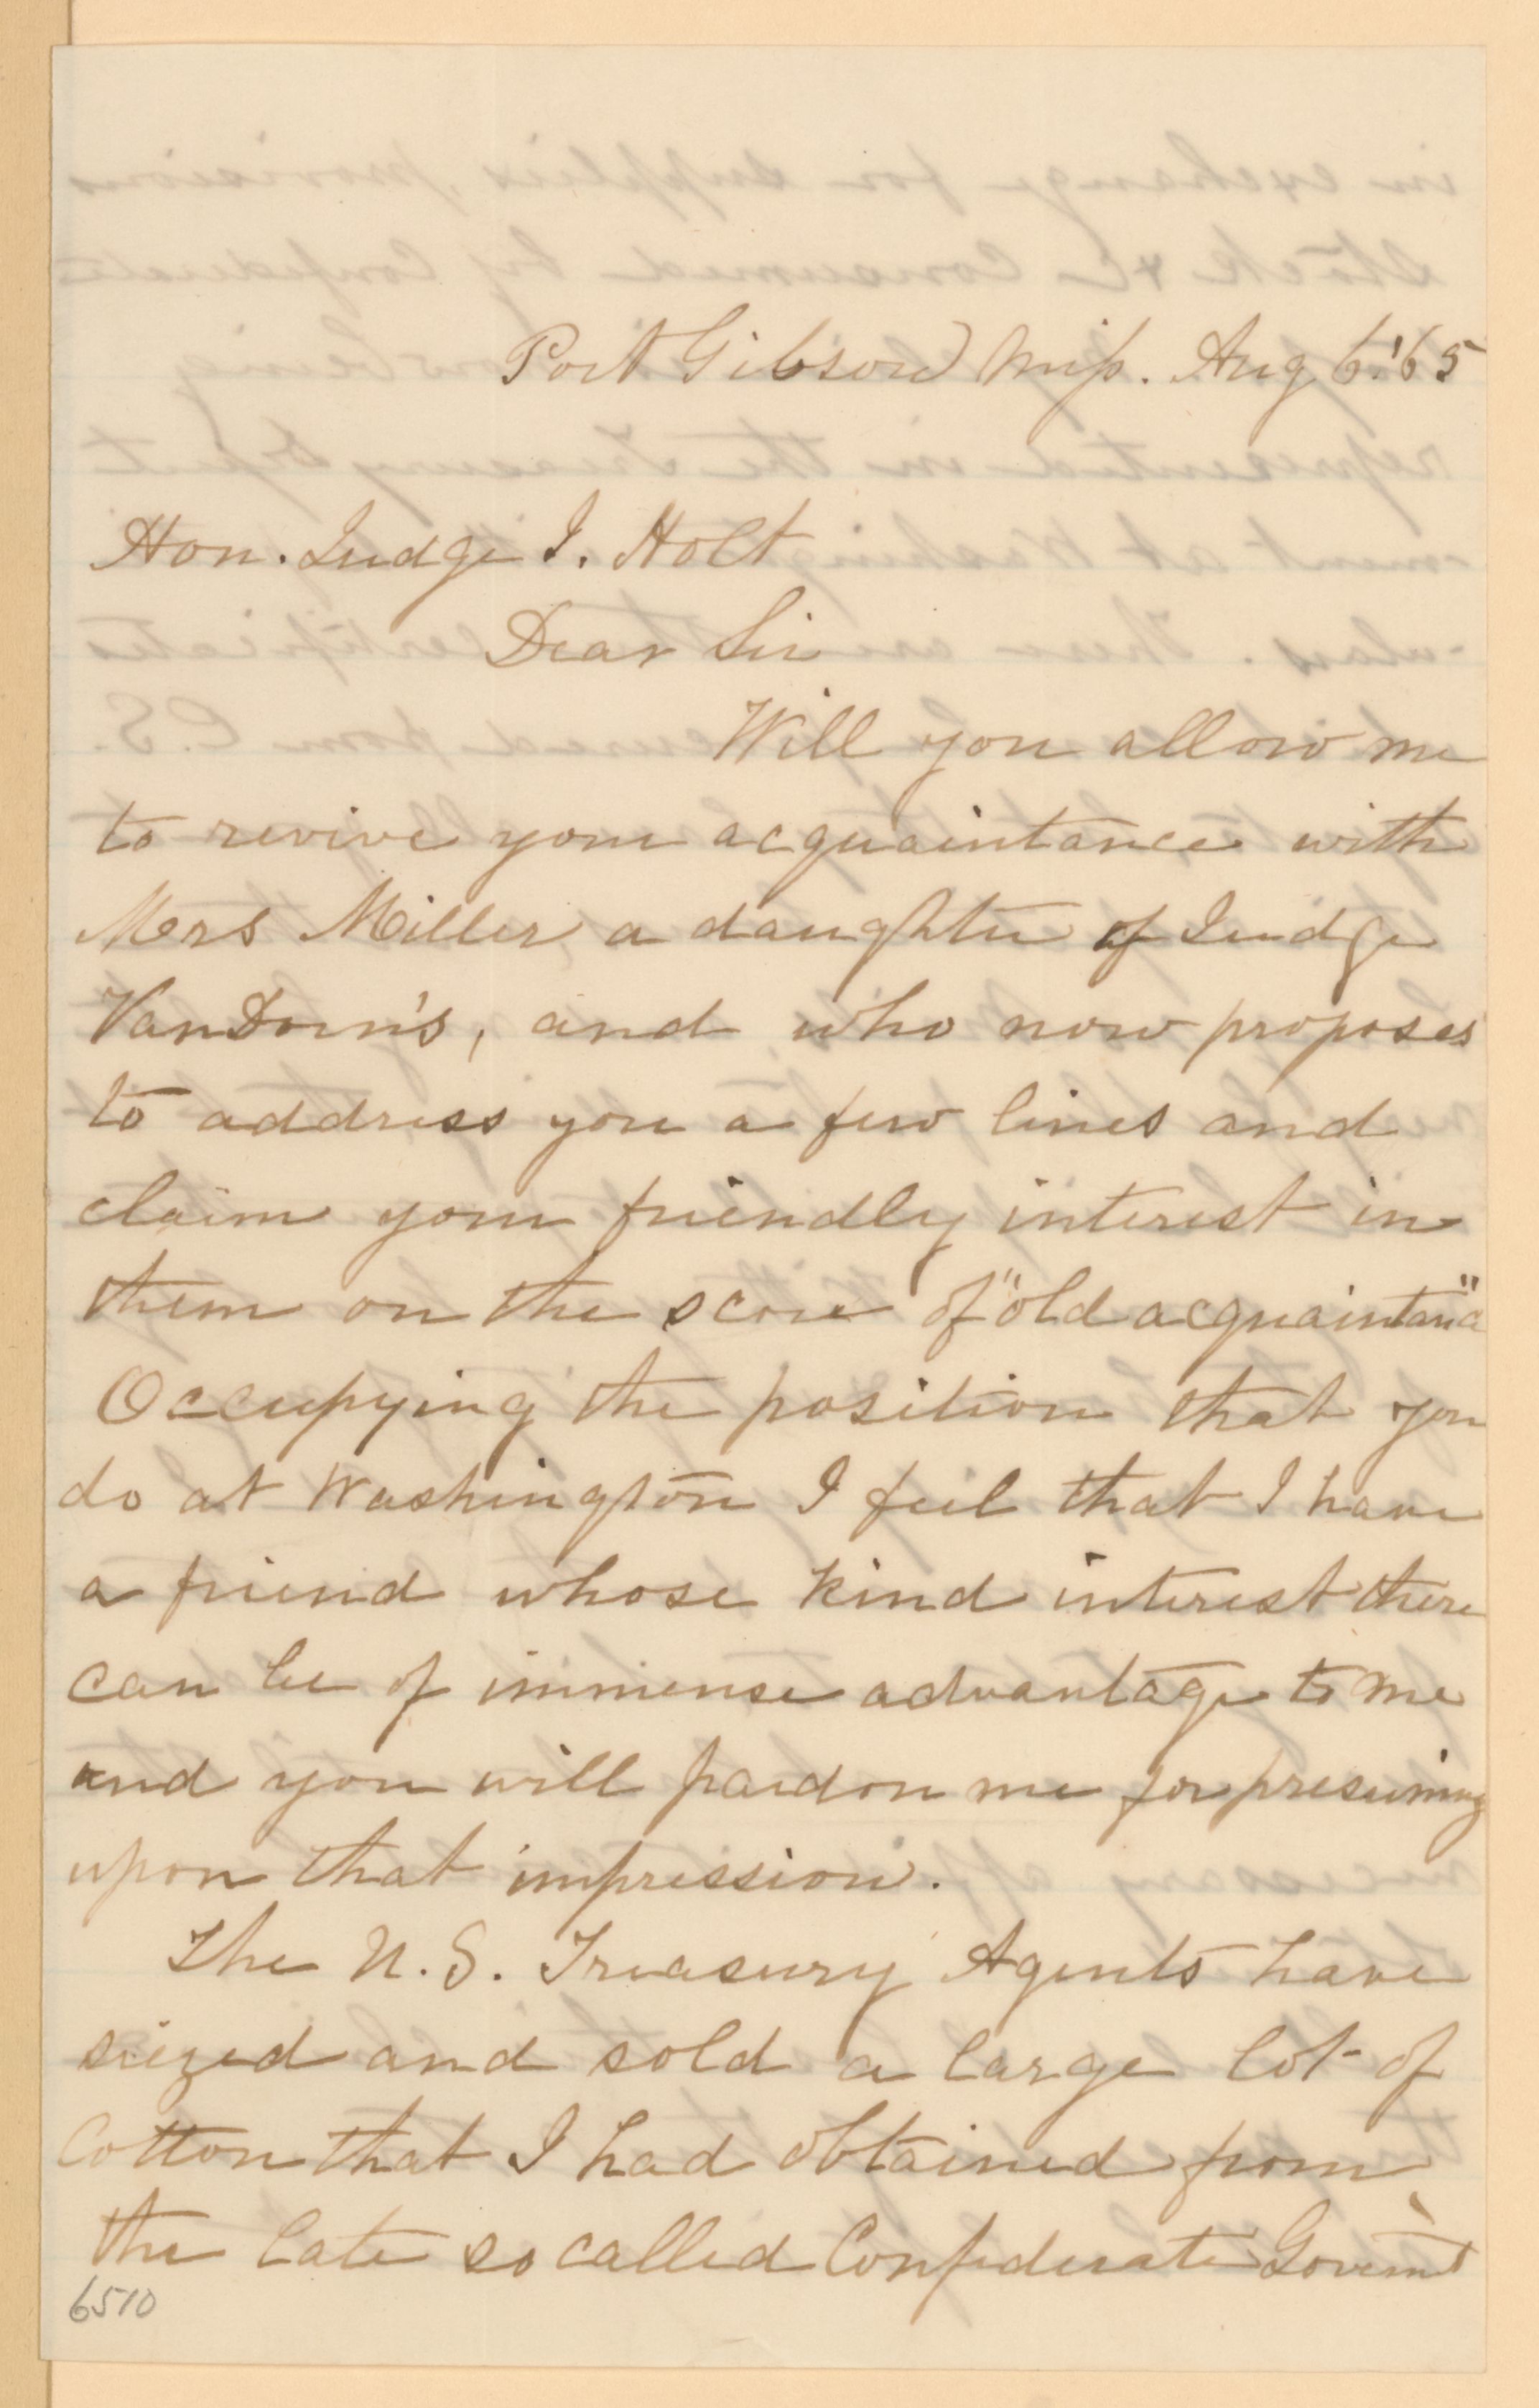 Port Gibson Miss. Aug 6. '65
Hon. Judge J. Holt
Dear Sir
Will you allow me
to revive your acquaintance with
Mrs Miller, a daughter of Judge
VanDorn's, and who now proposes
to address you a few lines and
claim your friendly interest in
them on the score of "old acquaintance"
Occupying the position that you
do at Washington I feel that I have
a friend whose kind interest there
can be of immense advantage to me
and you will pardon me for presuming
upon that impression.
The U.S. Treasury Agents have
siezed and sold a large lot of
Cotton that I had obtained from
the late so called Confederate Governmt
6510